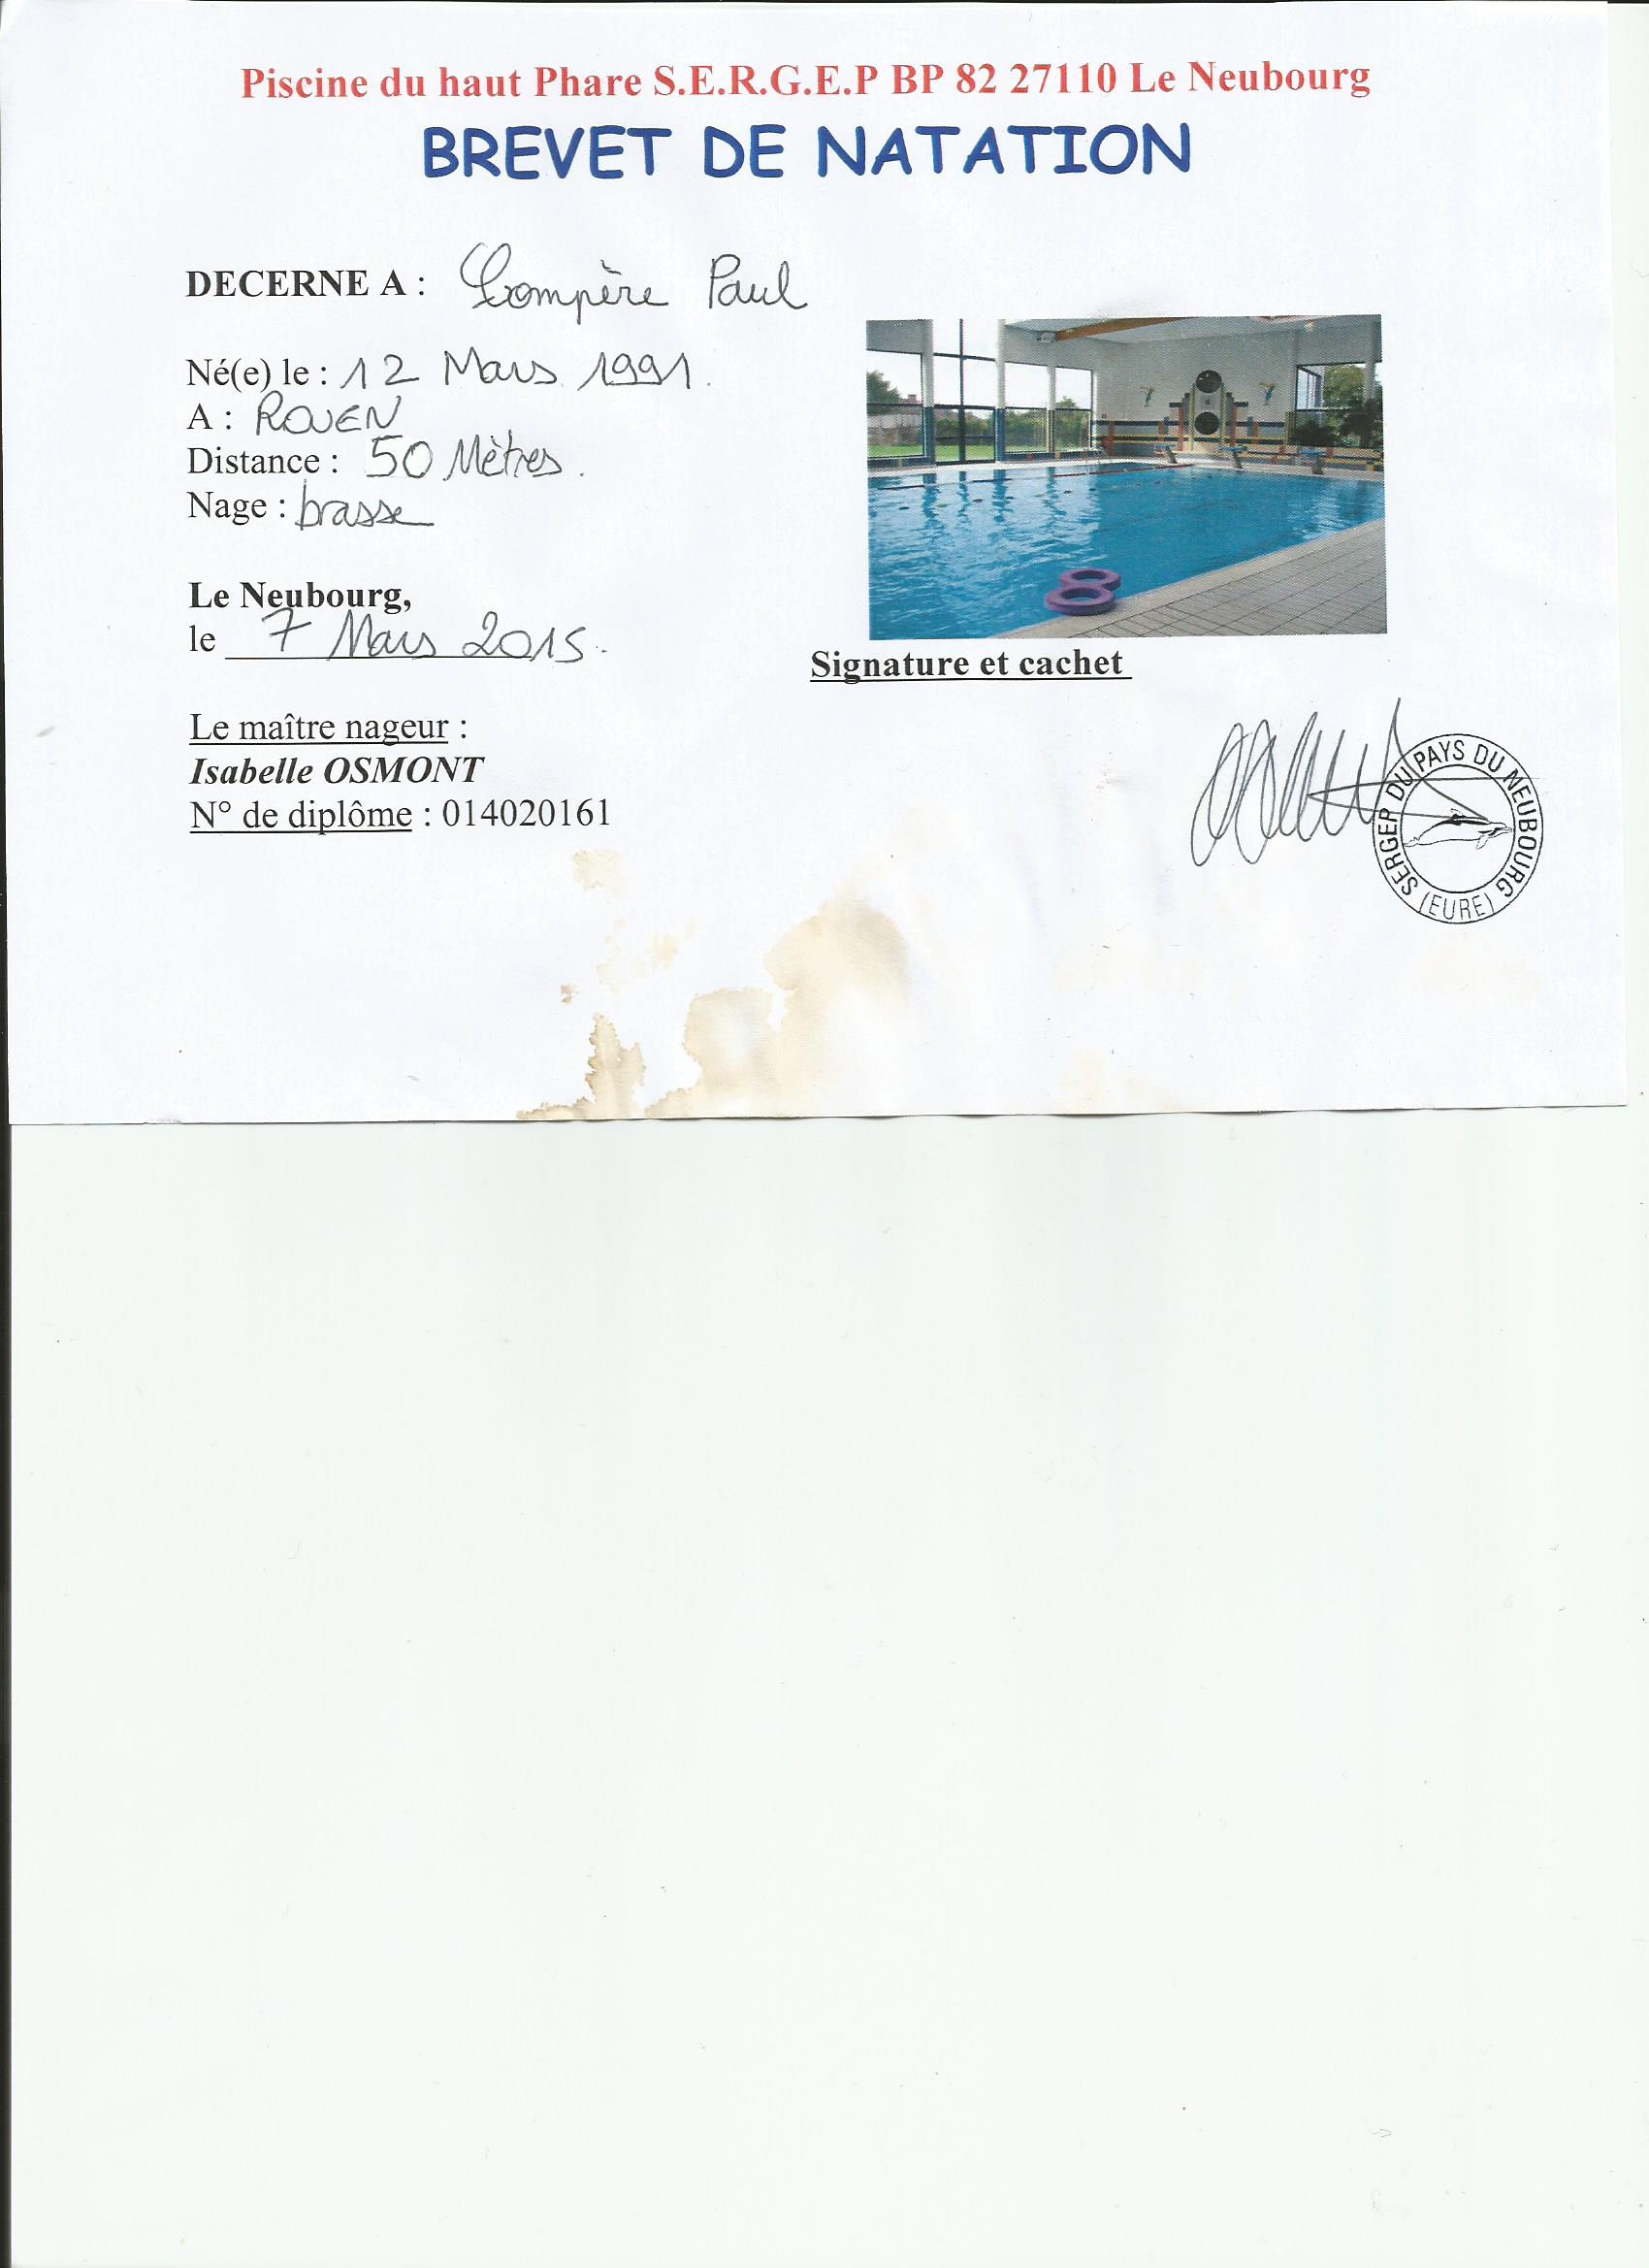 Piscine du haut Phare S.E.R.G.E.P BP 82 27110 Le Neubourg
BREVET DE NATATION
DECERNE A : Compère Paul
Né(e) le : 12 Mars 1991.
A : ROUEN
Distance : 50 Mètres.
Nage : brasse
Le Neubourg,
le 7 Mars 2015.
Signature et cachet
Le maître nageur :
Isabelle OSMONT
N° de diplôme : 014020161
SERGEP DU PAYS DU NEUBOURG
(EURE)